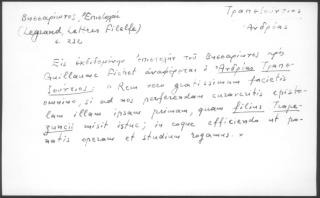 Βησσαρίωνος, Ἐπιστολαί
Τραπεζούντιος
(Legrand, Lettres Filelfe)
Ἀνδρέας
σ. 232
Εἰς ἐκδιδομένην ἐπιστολὴν τοῦ Βησσαρίωνος πρὸς
Guillaume Fichet ἀναφέρεται ὁ Ἀνδρέας Τραπε-
ζούντιος: « Rem vero gratissimam facietis
omnino, si ad nos perferendam curaveritis episto-
lam illam ipsam primam, quam filius Trape-
zuncii misit istuc; in eaque efficienda ut po-
natis operam et studium rogamus. »